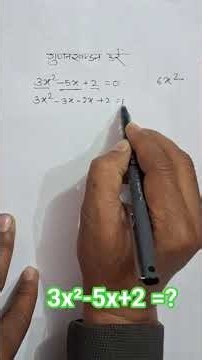 गुणनखण्डन करें
3x² - 5x + 2 = 0 6x²
3x² - 3x - 2x + 2 =
3x²-5x+2 =?